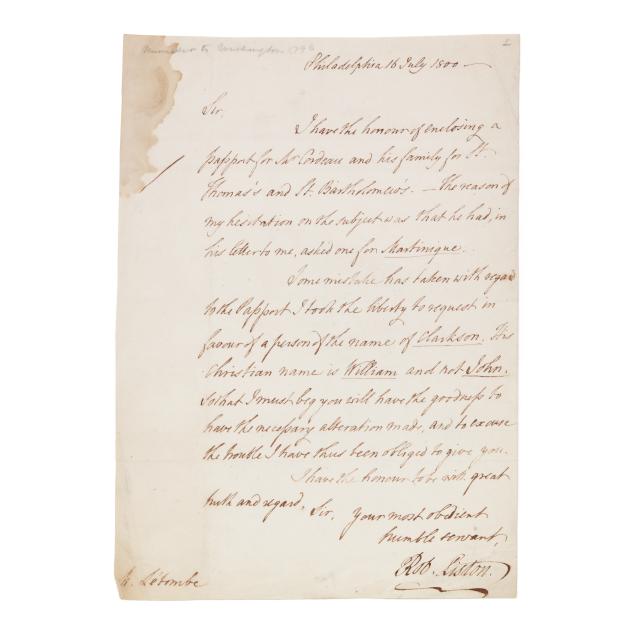 Minister to Washington 1796
Philadelphia 16 July 1800 —
Sir,
I have the honour of enclosing a
passport for Mr Cordeau and his family for St.
Thomas's and St. Bartholomew's. — The reason of
my hesitation on the subject was that he had, in
his letter to me, asked one for Martinique.
Some mistake has taken with regard
to the Passport I took the liberty to request in
favour of a person of the name of Clarkson. His
Christian name is William and not John.
So that I must beg you will have the goodness to
have the necessary alteration made, and to excuse
the trouble I have thus been obliged to give you.
I have the honour to be with great
truth and regard, Sir, your most obedient
humble servant,
Rob. Liston.
Létombe